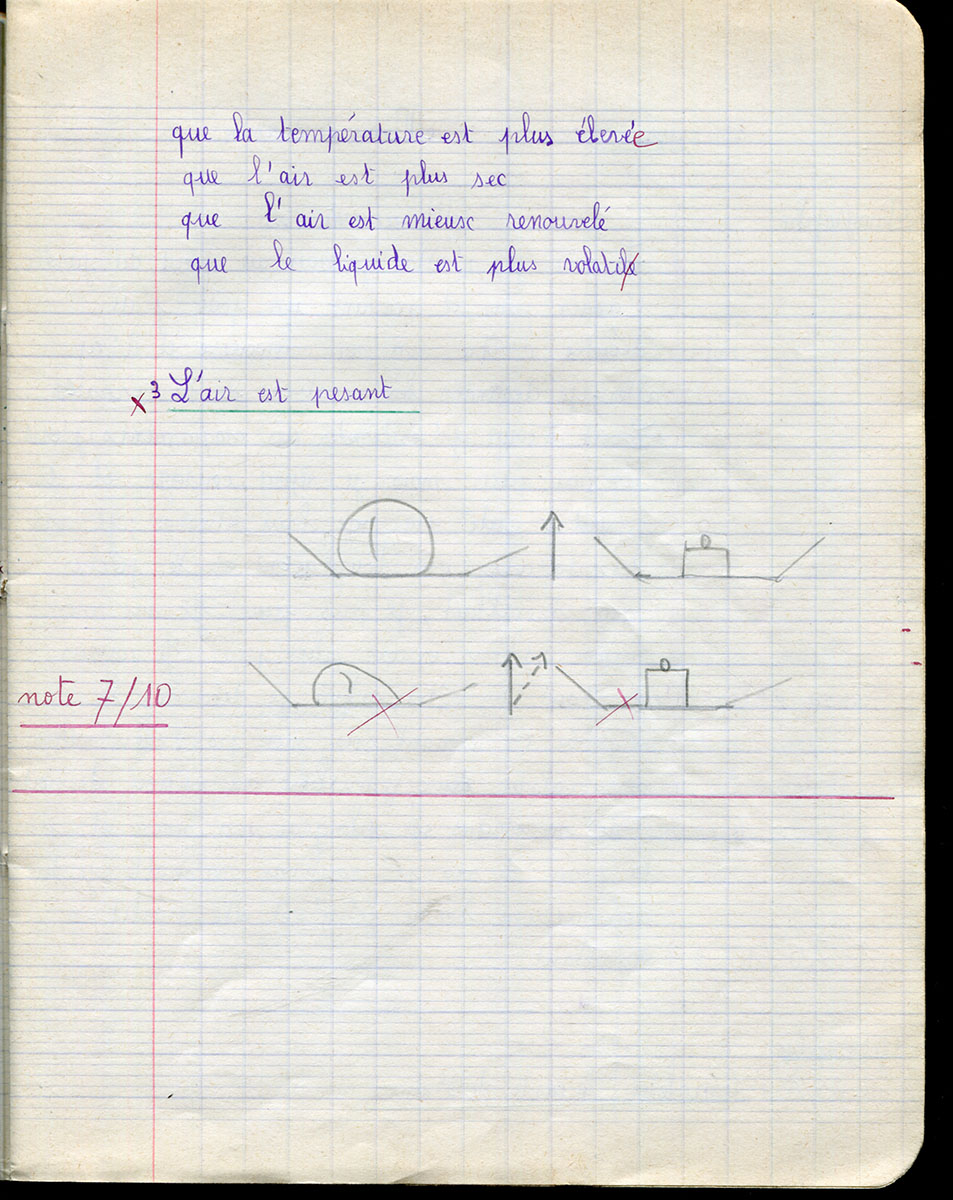 que la température est plus élevée
que l'air est plus sec
que l'air est mieux renouvelé
que le liquide est plus volatil
3 L'air est pesant
note 7/10